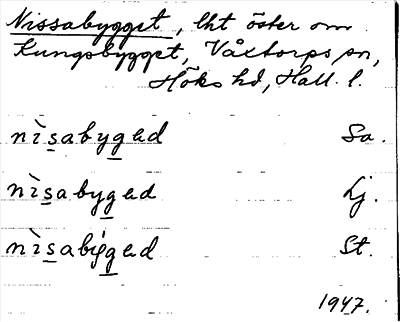 Nissabygget, lht öster om
Kungsbygget, Våxtorps sn,
Höks hd, Hall. l.
nìsabyged Sa.
nìsabyged Lj.
nìsabiged St.
1947.